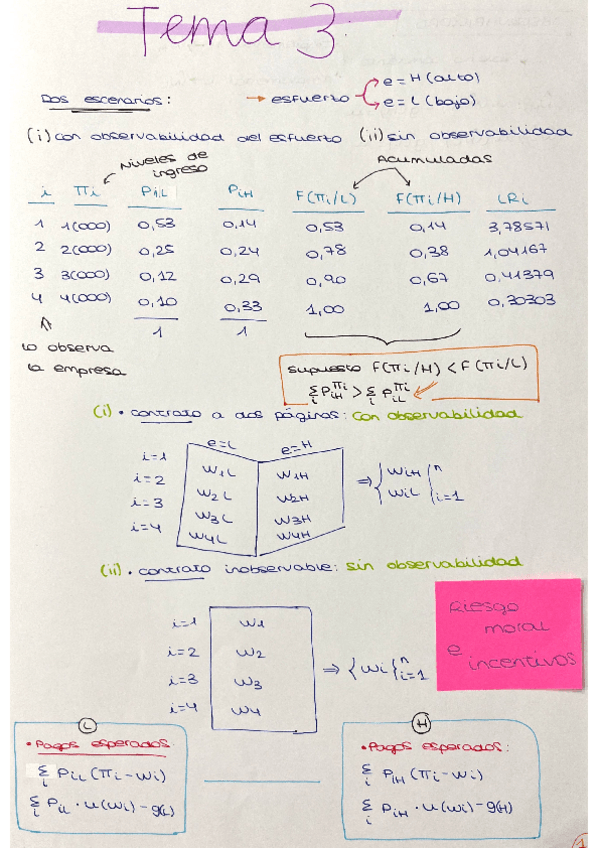 Tema 3
Dos escenarios: → esfuerzo e=H (alto)
e=L (bajo)
(i) con observabilidad del esfuerzo (ii) sin observabilidad
Niveles de ingreso
Acumuladas
i πi PiL PiH F(πi/L) F(πi/H) LRi
1 1(000) 0,53 0,14 0,53 0,14 3,78571
2 2(000) 0,25 0,24 0,78 0,38 1,04167
3 3(000) 0,12 0,29 0,90 0,67 0,41379
4 4(000) 0,10 0,33 1,00 1,00 0,30303
1 1
lo observa
la empresa
supuesto F(πi/H) < F(πi/L)
Σi PiH πi > Σi PiL πi
(i) • contrato a dos páginas: con observabilidad
e=L e=H
i=1 W1L W1H
i=2 W2L W2H
i=3 W3L W3H
i=4 W4L W4H
⇒ { WiH WiL }ⁿ i=1
(ii) • contrato inobservable: sin observabilidad
i=1 W1
i=2 W2
i=3 W3
i=4 W4
⇒ {Wi}ⁿ i=1
Riesgo
moral
e
incentivos
L
• Pagos esperados
Σi PiL (πi - Wi)
Σi PiL · u(Wi) - g(L)
H
• Pagos esperados:
Σi PiH (πi - Wi)
Σi PiH · u(Wi) - g(H)
1